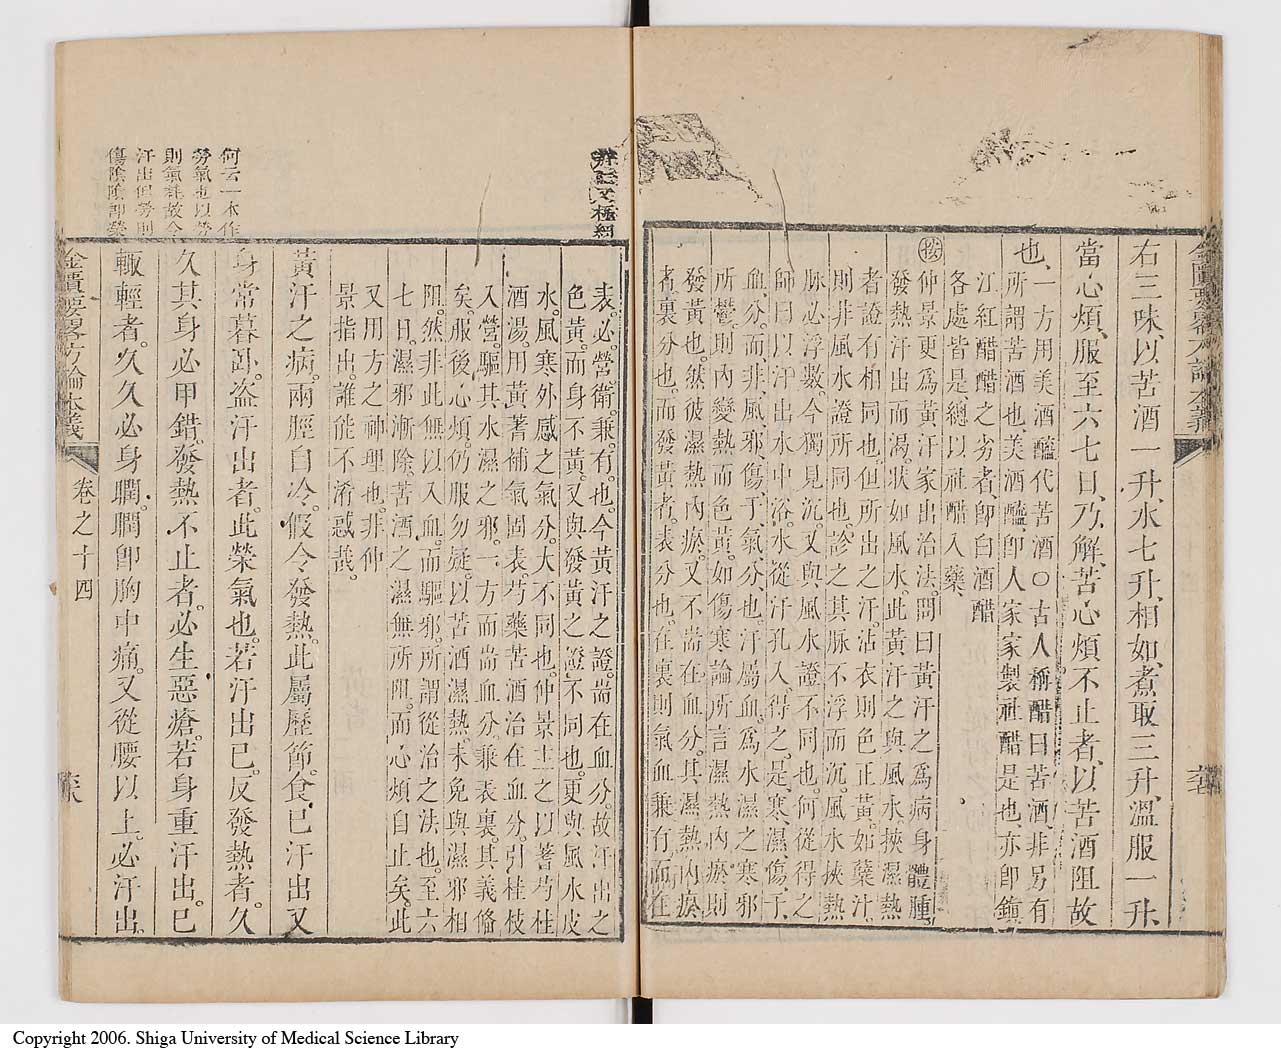 右三味、以苦酒一升、水七升、相和、煮取三升、溫服一升、
當心煩、服至六七日、乃解、苦心煩不止者、以苦酒阻故
也、一方用美酒醯代苦酒○古人稱醋曰苦酒、非另有
所謂苦酒也、美酒醯、即人家家製社醋是也、亦即鎮
江紅醋、醋之劣者、即白酒醋
各處皆是、總以社醋入藥、
按仲景更爲黃汗家出治法。問曰、黃汗之爲病、身體腫、
發熱汗出而渴、狀如風水。此黃汗之與風水挾濕熱
者、證有相同也。但所出之汗、沾衣則色正黃。如蘗汁。
則非風水證所同也。診之其脉不浮而沉、風水挾熱
脉必浮數。今獨見沉、又與風水證不同也。何從得之。
師曰、以汗出水中浴。水從汗孔入、得之。是寒濕傷于
血分。而非風邪傷于氣分也。汗屬血。爲水濕之寒邪
所鬱。則內變熱而色黃。如傷寒論所言、濕熱內瘀則
發黃也。然彼濕熱內瘀。又不耑在血分。其濕熱內瘀
者、裏分也。而發黃者、表分也。在裏則氣血兼有、而在
表。必營衛兼有也。今黃汗之證。耑在血分。故汗出之
色黃。而身不黃。又與發黃之證不同也。更與風水皮
水。風寒外感之氣分。大不同也。仲景主之以蓍芍桂
酒湯。用黃蓍補氣固表。芍藥苦酒治在血分。引桂枝
入營。驅其水濕之邪。一方而耑血分。兼表裏。其義備
矣。服後心煩仍服勿疑。以苦酒濕熱。未免與濕邪相
阻。然非此無以入血。而驅邪。所謂從治之法也。至六
七日。濕邪漸除。苦酒之濕無所阻。而心煩自止矣。此
又用方之神理也。非仲
景指出。誰能不淆惑哉。
黃汗之病。兩脛自冷。假令發熱。此屬歷節。食已汗出。又
身常暮卧。盜汗出者。此榮氣也。若汗出已。反發熱者。久
久其身必甲錯。發熱不止者。必生惡瘡。若身重汗出。已
輙輕者。久久必身瞤。瞤即胸中痛。又從腰以上。必汗出。
何云一本作
勞氣也以勞
則氣耗故令
汗出但勞則
傷陰陰即榮
金匱要畧方論本義
卷之十四
Copyright 2006. Shiga University of Medical Science Library